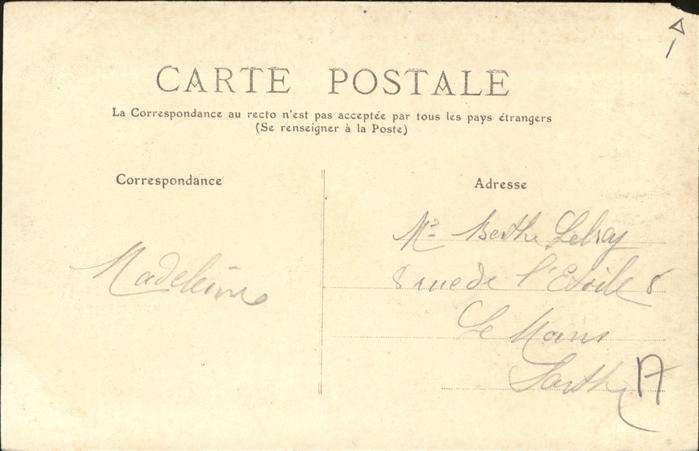 CARTE POSTALE
La Correspondance au recto n'est pas acceptée par tous les pays étrangers
(Se renseigner à la Poste)
Correspondance
Adresse
Madeleine
Berthe
8 rue de l'Etoile 8
Le Mans
Sarthe